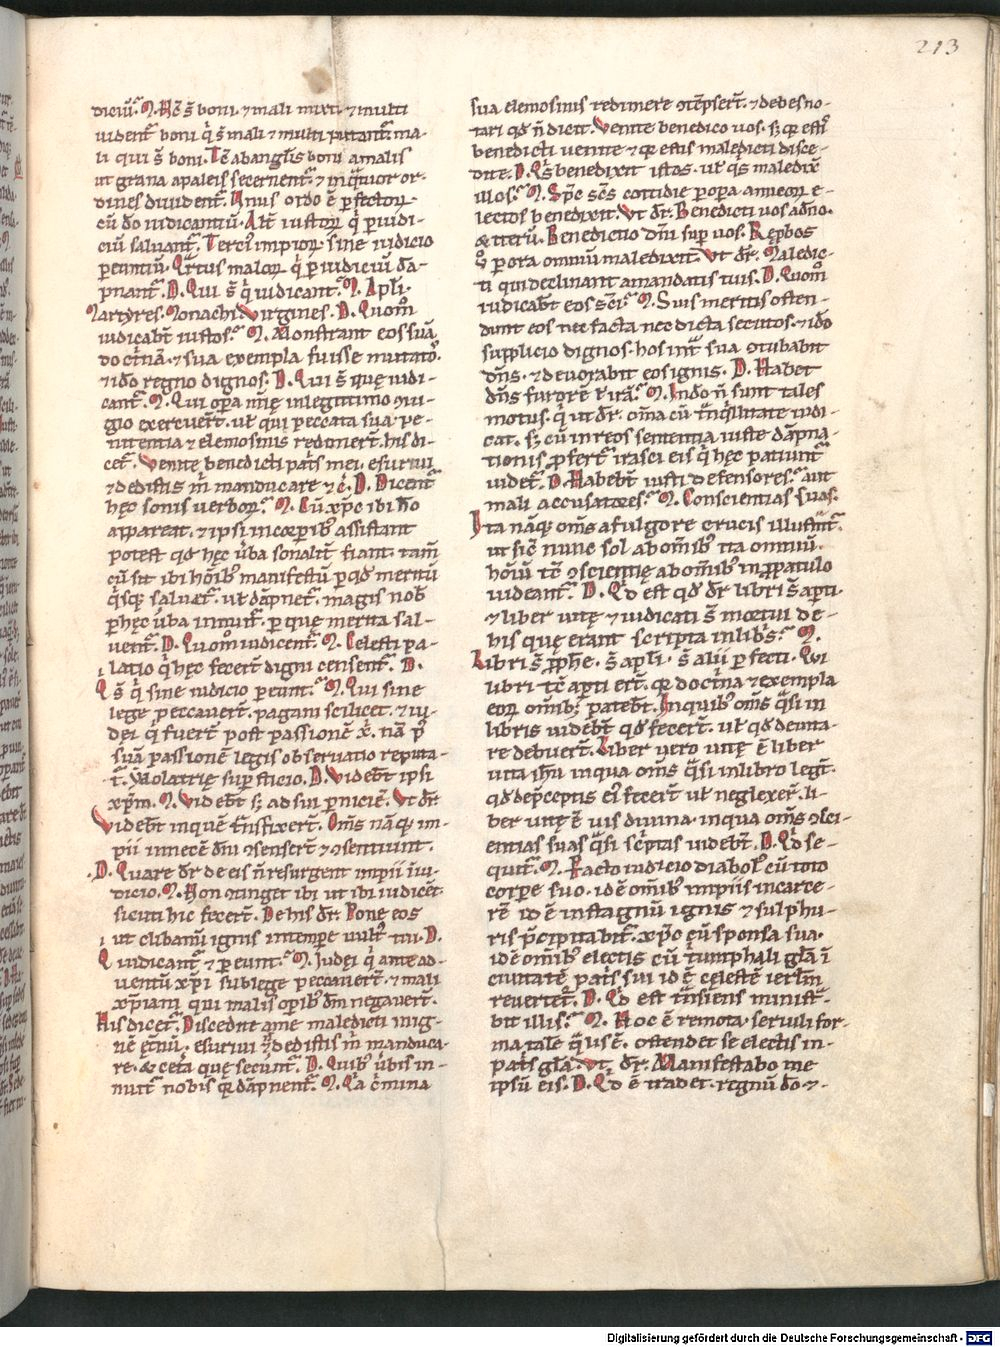 213
diciũ. M. Hic s̄ boni ⁊ mali mixti. ⁊ multi
uident᷑ boni q̇ s̄ mali ⁊ multi putant᷑ ma-
li qui s̄ boni. Tc̄ ab angl̄is boni a malis
ut grana a paleis secernent᷑ ⁊ in q̄tuor or-
dines diuident᷑. Unus ordo ē ꝑfectoꝝ
cū dō iudicantiũ. Alt̄ iustoꝝ q̇ ꝑ iudi-
ciũ saluant᷑. Terci᷒ impioꝝ sine iudicio
pereuntiũ. Qrtus maloꝝ q̇ ꝑ iudiciũ dā-
pnant᷑. D. Qui s̄ q̇ iudicant᷑. M. Apl̄i.
Martyres. Monachi. Virgines. D. Quom̊
iudicabt̄ iustos. M. Monstrant eos suā
doct̄nā ⁊ sua exempla fuisse imitatos.
⁊ idō regno dignos. D. Qui s̄ quę iudi-
cant᷑. M. Qui oꝑa mīę in legittimo iui-
gio exercuert̄. ul̄ qui peccata sua pe-
nitentia ⁊ elemosinis redimert̄. his di-
cet᷑. Venite benedicti pat̄s mei. esuriui
⁊ dedistis m̄ manducare ⁊ c̄. D. Dicent᷑
hęc sonis uerboꝝ. M. Cū xp̄c ibi hō
appareat. ⁊ ipsi in corꝑib᷒ assistant
potest qd̄ hęc ūba sonalit̄ fiant. tam̄
cū sit ibi hōib᷒ manifestū ꝑ qd̄ meritū
q̇sq; saluet᷑. ul̄ dāpnet᷑. magis nob̄
ꝑ hęc ūba innuit᷑. ꝑ que merita sal-
uent᷑. D. Quom̊ iudicent᷑. M. Celesti pa-
latio q̇ hęc fecert̄ digni censent᷑. D.
Q s̄ q̇ sine iudicio pereunt. M. Qui sine
lege peccauert̄. pagani scilicet. ⁊ iu-
dęi q̇ fuert̄ post passionē x̄. nā p᷒
suā passionē legis obseruatio reputa-
t᷑. ydolatrię supsticio. D. Videbt̄ ipsi
xp̄m. M. Videbt̄ s; ad sui ꝑniciē. Ut dr̄
Videbt̄ in quē t̄nsfixert̄. Om̄s nāq; im-
pii in necē dn̄i ꝯsensert̄ ⁊ ꝯsentiunt.
D. Quare dr̄ de eis n̄ resurgent impii ī iu-
dicio. M. Non ꝯtinget ibi ut ibi iudicēt
sicuti hic fecert̄. De his dr̄. Pone eos
ut clibanū ignis in tempe uult᷒ tui. D.
Q iudicant᷑ ⁊ pereunt. M. Judęi q̇ ante ad-
uentū xp̄i sub lege peccauert̄. ⁊ mali
xp̄iani qui malis opib᷒ dm̄ negauert̄.
His dicet᷑. Discedite a me maledicti in ig-
nē ęt̄nū. esuriui ⁊ n̄ dedistis m̄ manduca-
re. & cet̄a quę secunt᷑. D. Quib᷒ ūbis in-
nuit᷑ nobis q̇ dāpnent᷑. M. Qa c̄mina
sua elemosinis redimere ꝯtēpsert̄. ⁊ debes no-
tari qd̄ n̄ dicit. Venite benedico uos. s; q; estis
benedicti uenite ⁊ q; estis maledicti disce-
dite. D. Qs̄ benedixit istos. ul̄ qs̄ maledix̄
illos. M. Sp̄c sc̄s cottidie ꝑ ora amicoꝝ e-
lectos benedixit. Ut dr̄. Benedicti uos a dn̄o.
& iterū. Benedictio dn̄i sup uos. Repbos
ū ꝑ ora omniū maledixit. Ut dr̄. Maledic-
ti qui declinant a mandatis tuis. D. Quom̊
iudicabt̄ eos sc̄i. M. Suis meritis osten-
dunt eos nec facta nec dicta secutos. ⁊ idō
supplicio dignos. hos int̄ sua ꝯturbabit
dn̄s. ⁊ deuorabit eos ignis. D. Habet
dn̄s furorē ł irā. M. In dō n̄ sunt tales
motus. q̇ ut dr̄. om̄ia cū t̄nq̇llitate iudi-
cat. s; cū in reos sententia iuste dāpna-
tionis ꝓfert᷑ irasci eis q̇ hęc patiunt᷑
uidet᷑. D. Habebt̄ iusti defensores. aut
mali accusatores. M. Conscientias suas.
Ita nāq; om̄s a fulgore crucis illustt᷑.
ut sic̄ nunc sol ab om̄ib᷒ ita omniū
hōiū tc̄ ꝯscientię ab om̄ib᷒ in ꝓpatulo
uideant᷑. D. Qd̄ est qd̄ dr̄ libri s̄ apti.
⁊ liber uitę ⁊ iudicati s̄ mortui de
his quę erant scripta in lib̄s. M.
Libri s̄ ꝓphe. s̄ apl̄i. s̄ alii ꝑfecti. Qui
libri tc̄ apti ert̄. q; doct̄na ⁊ exempla
eoꝝ omib; patebt̄. In quib᷒ om̄s q̄si in
libris uidebt̄ qd̄ fecert̄. ul̄ qd̄ deuita-
re debuert̄. Liber uero uitę ē liber
uita ihū in qua om̄s q̄si in libro legt̄.
qd̄ de p̄ceptis ei᷒ fecert̄ ul̄ neglexert̄. li-
ber uitę ē uis diuina. in qua om̄s ꝯsci-
entias suas q̄si sc̄ptas uidebt̄. D. Qd̄ se-
quit᷑. M. Facto iudicio diabol᷒ cū toto
corpe suo. id ē om̄ib᷒ impiis in carce-
rē id ē in stagnū ignis ⁊ sulphu-
ris p̄cipitabit᷑. xp̄c cū sponsa sua.
id ē om̄ib᷒ electis cū t̄umphali gl̄a ī
ciuitatē pat̄s sui id ē celestē ierl̄m
reuertet᷑. D. Qd̄ est t̄nsiens minist̄-
bit illis. M. Hoc ē remota seruuli for-
ma tale q̇us ē. ostendet se electis in
pat̄s gl̄a. Ut dr̄. Manifestabo me
ipsū eis. D. Qd̄ ē tradet regnū dō ⁊-
Digitalisierung gefördert durch die Deutsche Forschungsgemeinschaft - DFG